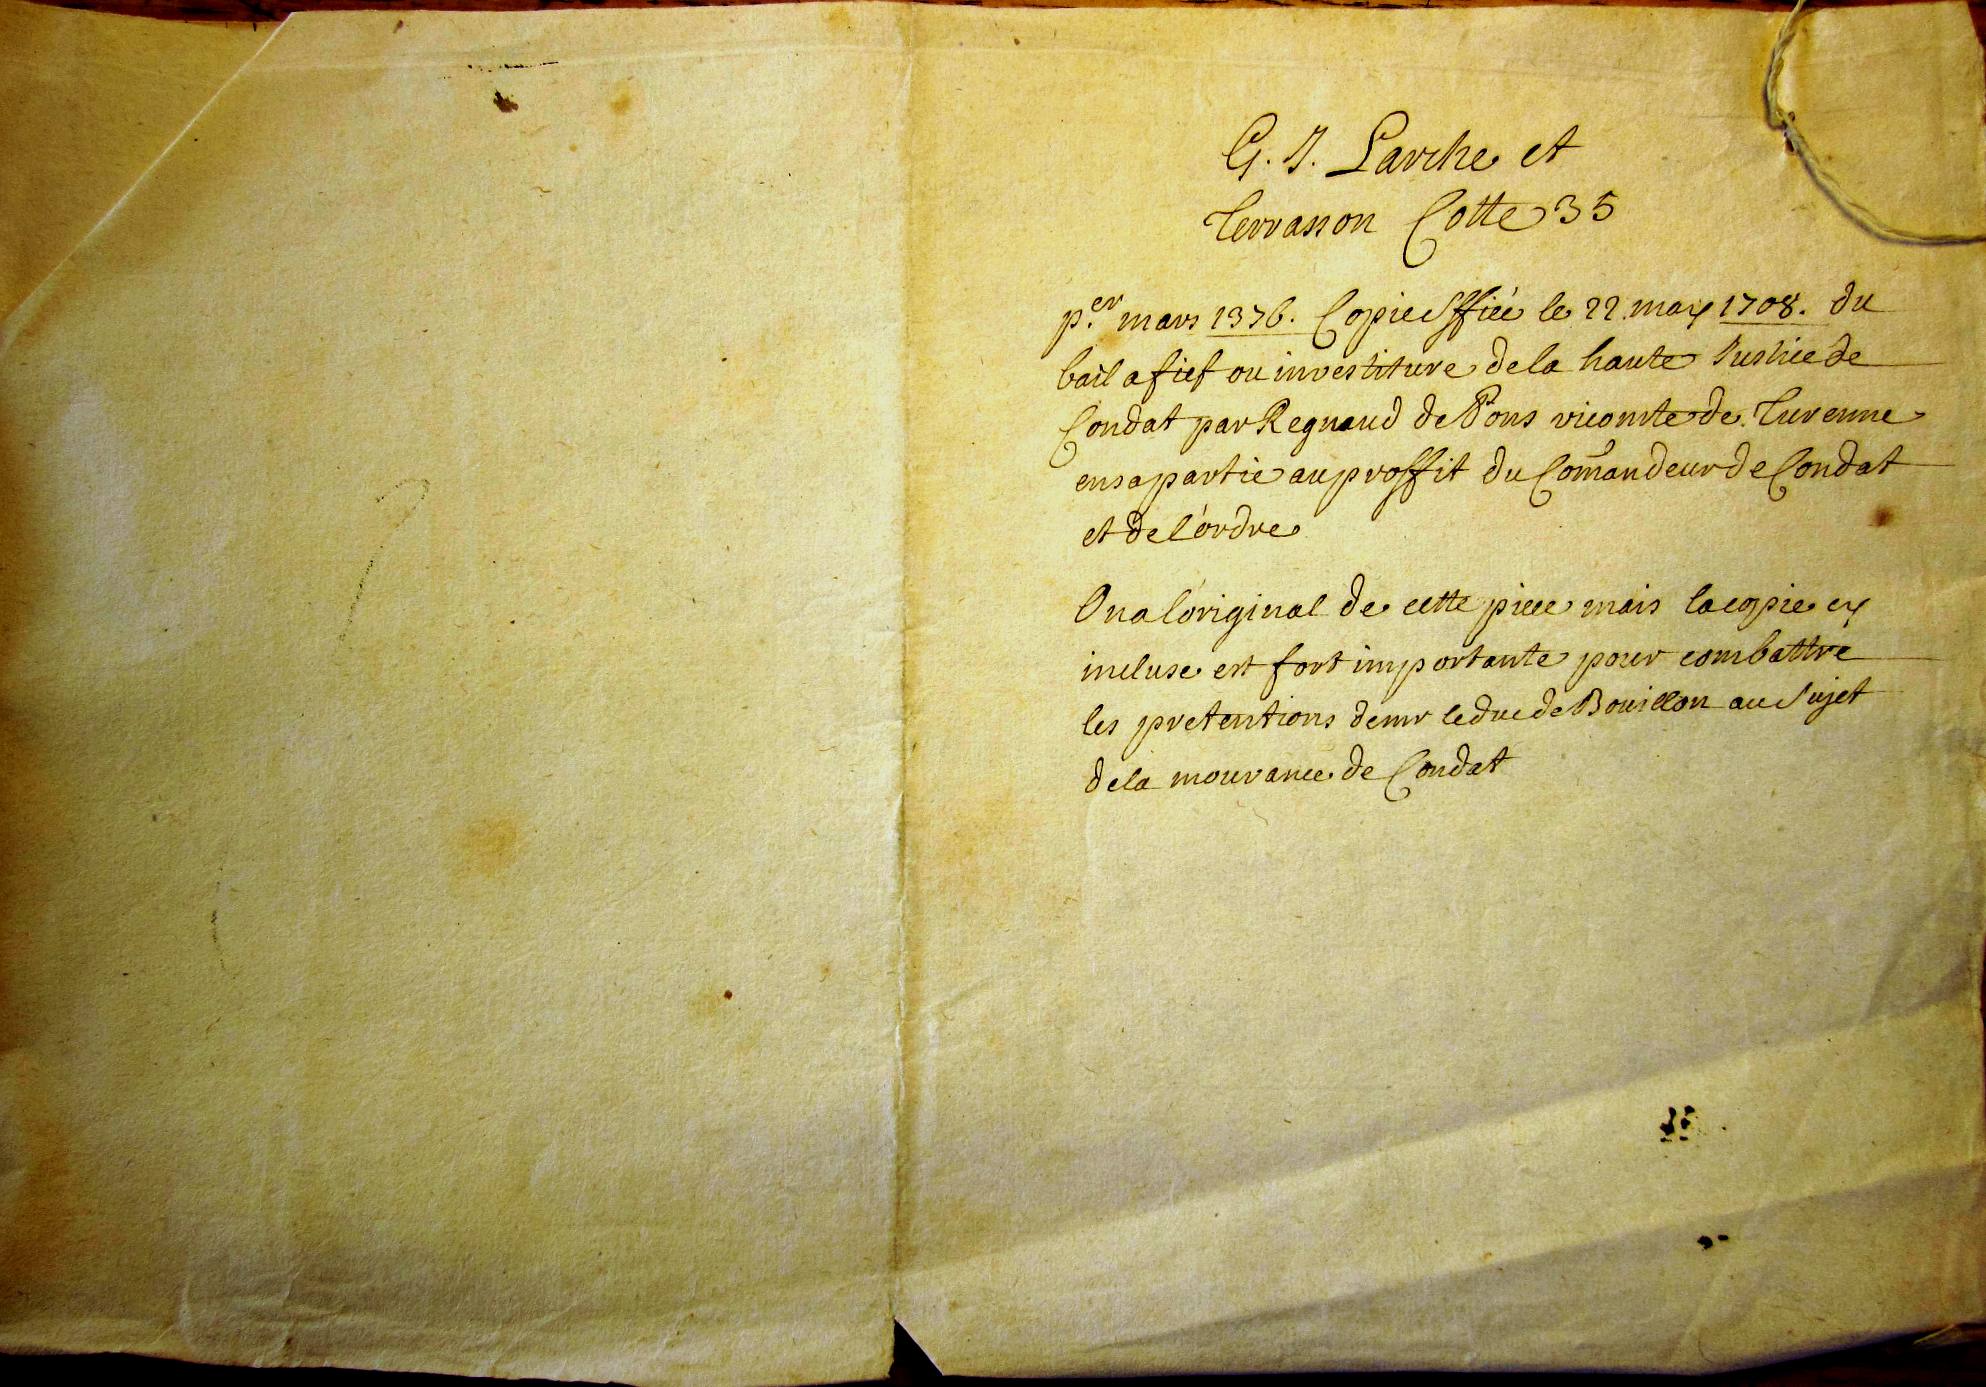 G. J. Larche et
Terrasson Cotte 35
p.er mars 1376. Copie sffiée le 22 may 1708. du
bail a fief ou investiture de la haute Justice de
Condat par Regnaud de Pons vicomte de Turenne
en sa partie au proffit du Comandeur de Condat
et de l'ordre
On a l'original de cette piece mais la copie cy
incluse est fort importante pour combattre
les pretentions de mr le duc de Bouillon au Sujet
de la mouvance de Condat